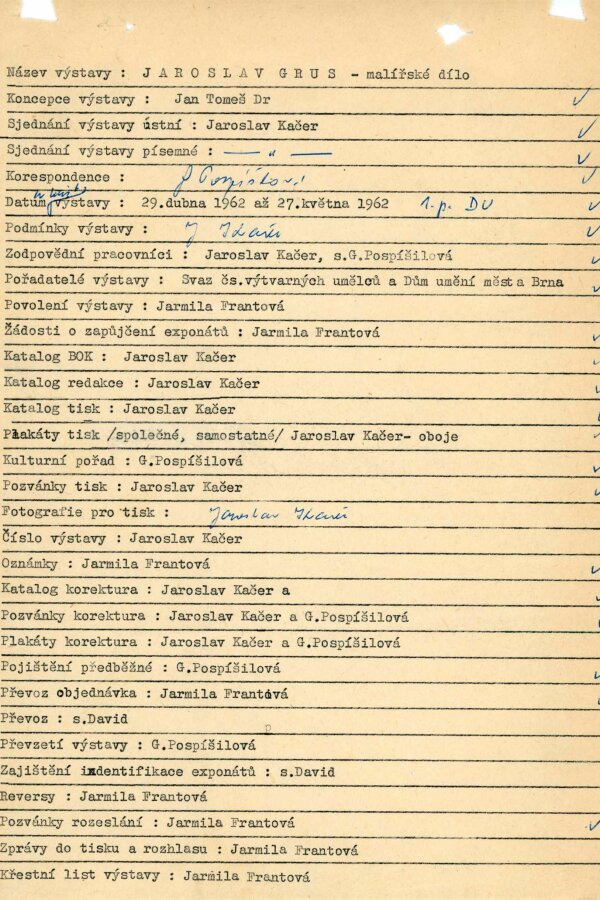 Název výstavy : J A R O S L A V G R U S - malířské dílo
Koncepce výstavy : Jan Tomeš Dr
Sjednání výstavy ústní : Jaroslav Kačer
Sjednání výstavy písemné : — " —
Korespondence :
Datum výstavy : 29.dubna 1962 až 27.května 1962 1.p. DU
Podmínky výstavy :
Zodpovědní pracovníci : Jaroslav Kačer, s.G.Pospíšilová
Pořadatelé výstavy : Svaz čs.výtvarných umělců a Dům umění města Brna
Povolení výstavy : Jarmila Frantová
Žádosti o zapůjčení exponátů : Jarmila Frantová
Katalog BOK : Jaroslav Kačer
Katalog redakce : Jaroslav Kačer
Katalog tisk : Jaroslav Kačer
Plakáty tisk /společné, samostatné/ Jaroslav Kačer- oboje
Kulturní pořad : G.Pospíšilová
Pozvánky tisk : Jaroslav Kačer
Fotografie pro tisk : Jaroslav
Číslo výstavy : Jaroslav Kačer
Oznámky : Jarmila Frantová
Katalog korektura : Jaroslav Kačer a
Pozvánky korektura : Jaroslav Kačer a G.Pospíšilová
Plakáty korektura : Jaroslav Kačer a G.Pospíšilová
Pojištění předběžné : G.Pospíšilová
Převoz objednávka : Jarmila Frantová
Převoz : s.David
Převzetí výstavy : G.Pospíšilová
Zajištění indentifikace exponátů : s.David
Reversy : Jarmila Frantová
Pozvánky rozeslání : Jarmila Frantová
Zprávy do tisku a rozhlasu : Jarmila Frantová
Křestní list výstavy : Jarmila Frantová